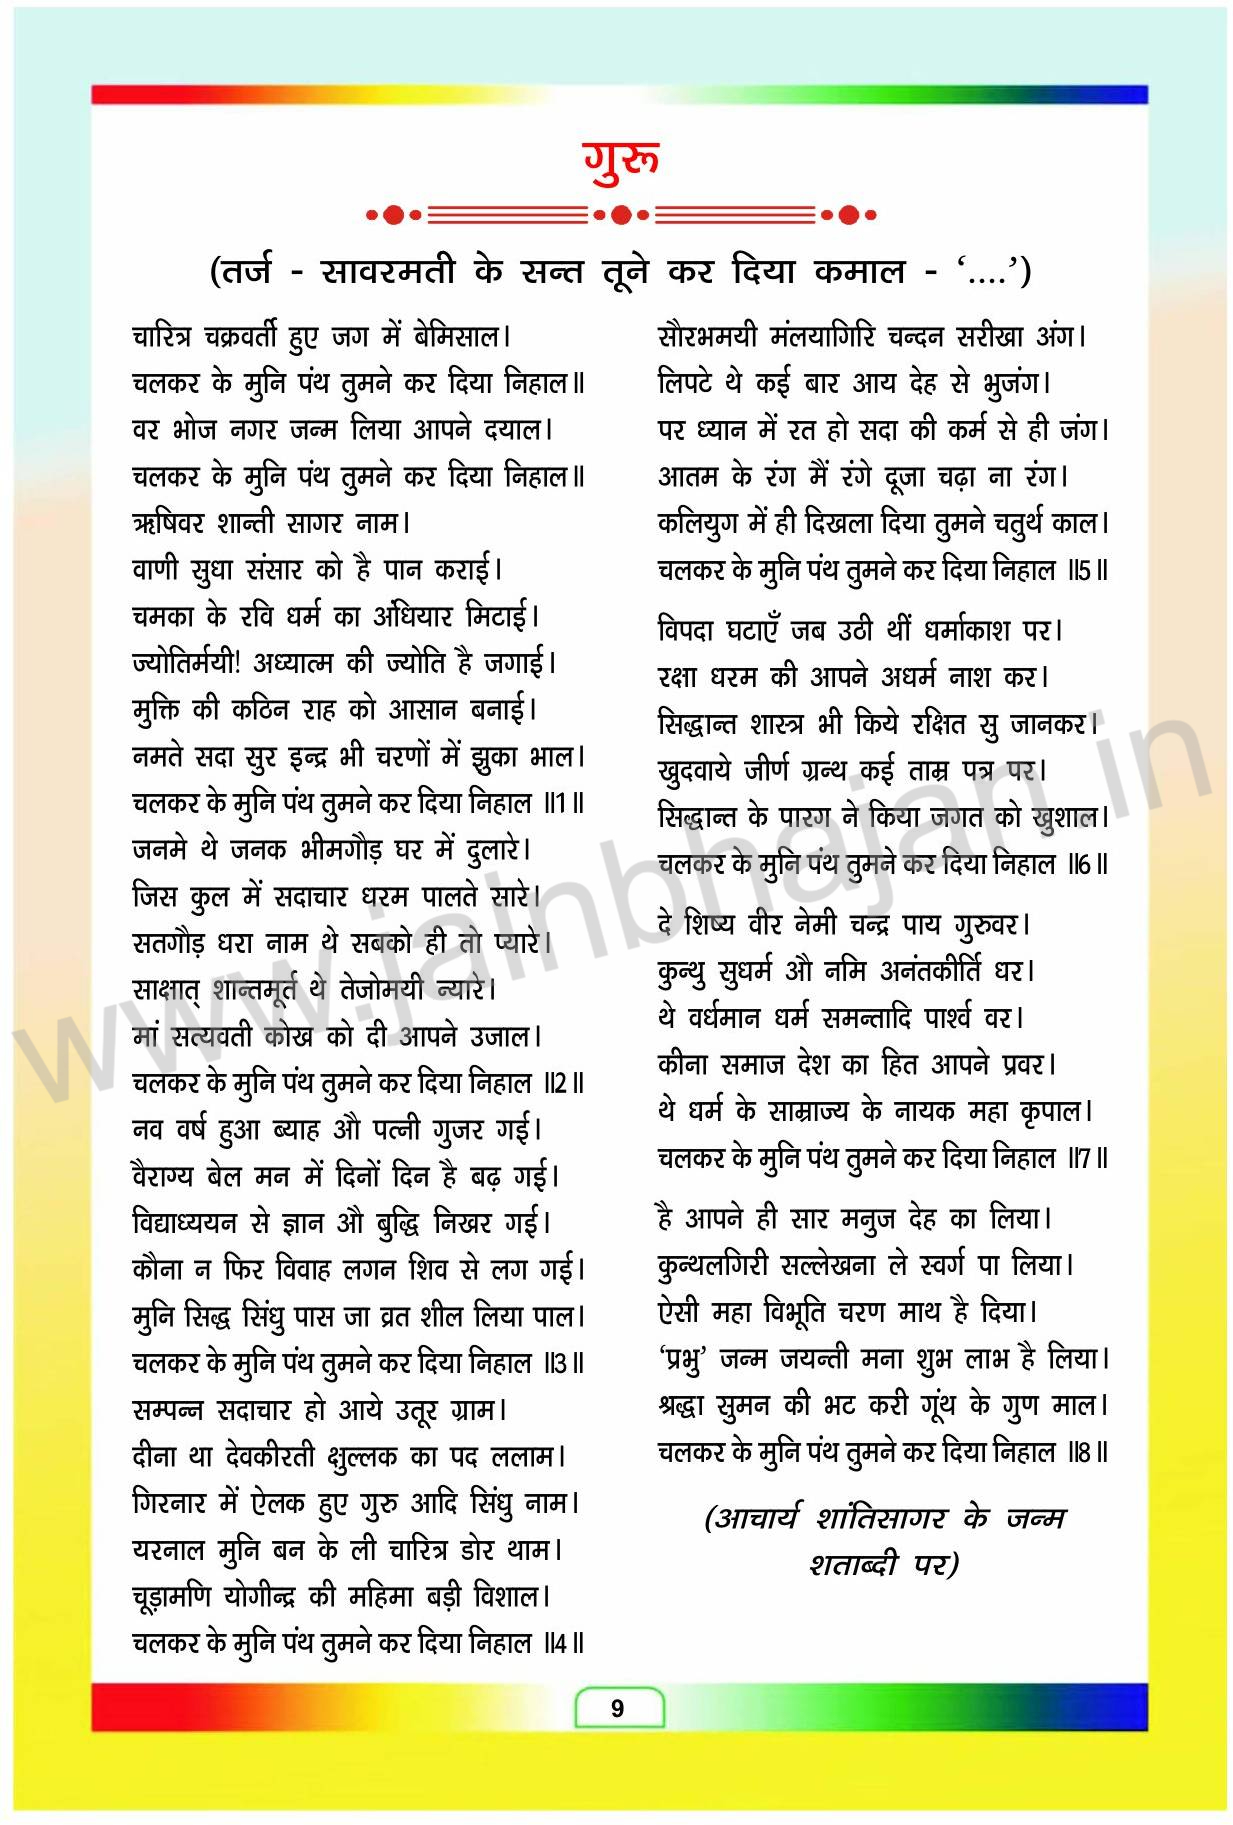 गुरू
(तर्ज - सावरमती के सन्त तूने कर दिया कमाल - ‘....’)
चारित्र चक्रवर्ती हुए जग में बेमिसाल।
चलकर के मुनि पंथ तुमने कर दिया निहाल॥
वर भोज नगर जन्म लिया आपने दयाल।
चलकर के मुनि पंथ तुमने कर दिया निहाल॥
ऋषिवर शान्ती सागर नाम।
वाणी सुधा संसार को है पान कराई।
चमका के रवि धर्म का अंधियार मिटाई।
ज्योतिर्मयी! अध्यात्म की ज्योति है जगाई।
मुक्ति की कठिन राह को आसान बनाई।
नमते सदा सुर इन्द्र भी चरणों में झुका भाल।
चलकर के मुनि पंथ तुमने कर दिया निहाल ॥1॥
जनमे थे जनक भीमगौड़ घर में दुलारे।
जिस कुल में सदाचार धरम पालते सारे।
सतगौड़ धरा नाम थे सबको ही तो प्यारे।
साक्षात् शान्तमूर्त थे तेजोमयी न्यारे।
मां सत्यवती कोख को दी आपने उजाल।
चलकर के मुनि पंथ तुमने कर दिया निहाल ॥2॥
नव वर्ष हुआ ब्याह औ पत्नी गुजर गई।
वैराग्य बेल मन में दिनों दिन है बढ़ गई।
विद्याध्ययन से ज्ञान औ बुद्धि निखर गई।
कौना न फिर विवाह लगन शिव से लग गई।
मुनि सिद्ध सिंधु पास जा व्रत शील लिया पाल।
चलकर के मुनि पंथ तुमने कर दिया निहाल ॥3॥
सम्पन्न सदाचार हो आये उतूर ग्राम।
दीना था देवकीरती क्षुल्लक का पद ललाम।
गिरनार में ऐलक हुए गुरु आदि सिंधु नाम।
यरनाल मुनि बन के ली चारित्र डोर थाम।
चूड़ामणि योगीन्द्र की महिमा बड़ी विशाल।
चलकर के मुनि पंथ तुमने कर दिया निहाल ॥4॥
सौरभमयी मंलयागिरि चन्दन सरीखा अंग।
लिपटे थे कई बार आय देह से भुजंग।
पर ध्यान में रत हो सदा की कर्म से ही जंग।
आतम के रंग मैं रंगे दूजा चढ़ा ना रंग।
कलियुग में ही दिखला दिया तुमने चतुर्थ काल।
चलकर के मुनि पंथ तुमने कर दिया निहाल ॥5॥
विपदा घटाएँ जब उठी थीं धर्माकाश पर।
रक्षा धरम की आपने अधर्म नाश कर।
सिद्धान्त शास्त्र भी किये रक्षित सु जानकर।
खुदवाये जीर्ण ग्रन्थ कई ताम्र पत्र पर।
सिद्धान्त के पारग ने किया जगत को खुशाल।
चलकर के मुनि पंथ तुमने कर दिया निहाल ॥6॥
दे शिष्य वीर नेमी चन्द्र पाय गुरुवर।
कुन्थु सुधर्म औ नमि अनंतकीर्ति धर।
थे वर्धमान धर्म समन्तादि पार्श्व वर।
कीना समाज देश का हित आपने प्रवर।
थे धर्म के साम्राज्य के नायक महा कृपाल।
चलकर के मुनि पंथ तुमने कर दिया निहाल ॥7॥
है आपने ही सार मनुज देह का लिया।
कुन्थलगिरी सल्लेखना ले स्वर्ग पा लिया।
ऐसी महा विभूति चरण माथ है दिया।
‘प्रभु’ जन्म जयन्ती मना शुभ लाभ है लिया।
श्रद्धा सुमन की भट करी गूंथ के गुण माल।
चलकर के मुनि पंथ तुमने कर दिया निहाल ॥8॥
(आचार्य शांतिसागर के जन्म
शताब्दी पर)
www.jainbhajan.in
9